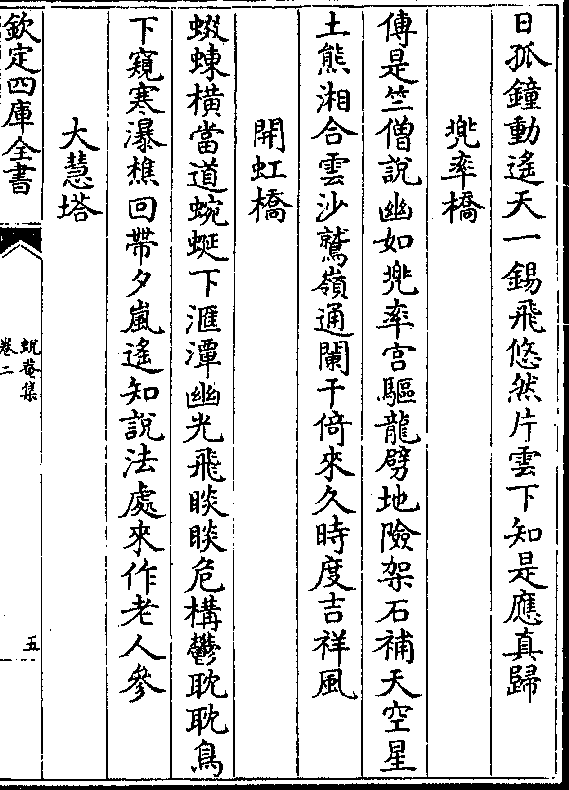 日孤鐘動遙天一錫飛悠然片雲下知是應真歸
兠率橋
傳是竺僧說幽如兠率宫驅龍劈地險架石補天空星
土熊湘合雲沙鷲嶺通闌干倚來久時度吉祥風
開虹橋
蝃蝀橫當道蜿蜒下滙潭幽光飛睒睒危構鬱耽耽鳥
下窺寒瀑樵回帶夕嵐遙知說法處來作老人參
大慧塔
欽定四庫全書
蜕菴集
卷二
五